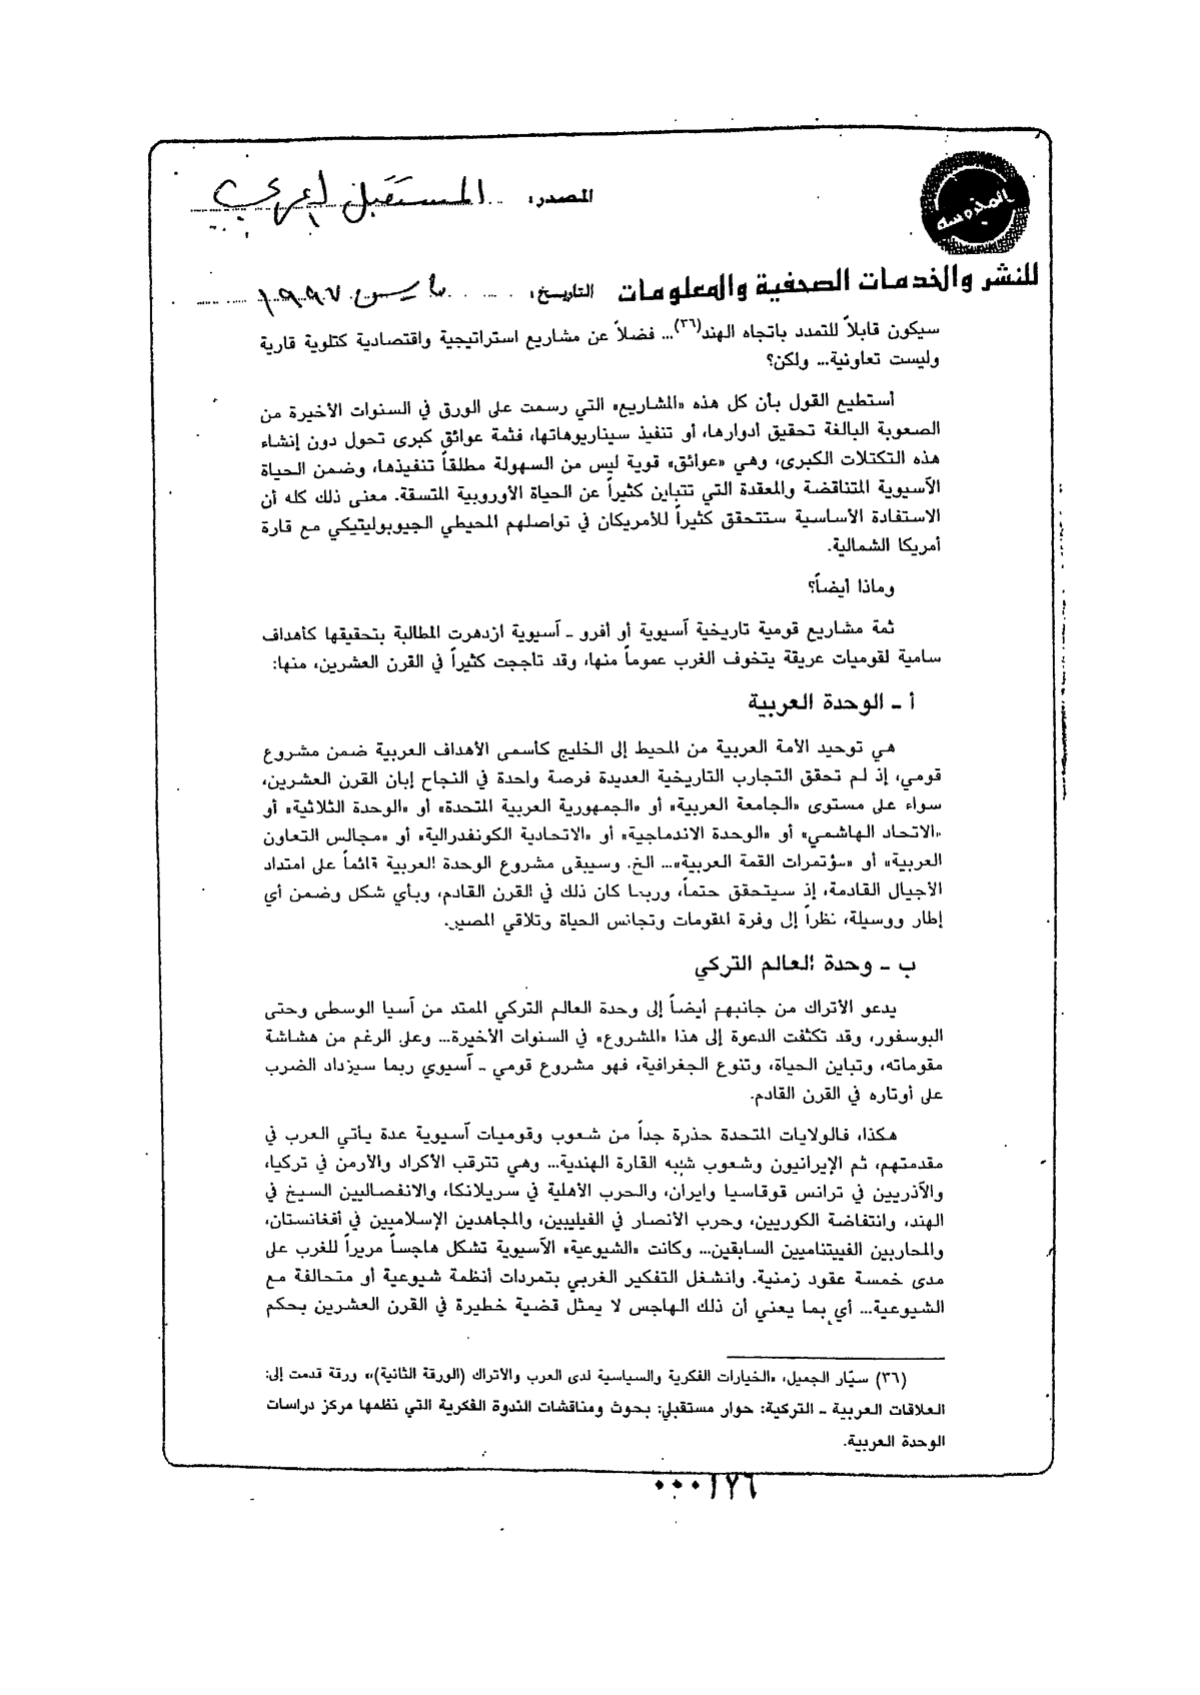 المصدر: المستقبل العربي
المحروسة
للنشر والخدمات الصحفية والمعلومات
التاريخ: مايس ١٩٩٧
سيكون قابلاً للتمدد باتجاه الهند(٣٦)... فضلاً عن مشاريع استراتيجية واقتصادية كتلوية قارية
وليست تعاونية... ولكن؟
أستطيع القول بأن كل هذه «المشاريع» التي رسمت على الورق في السنوات الأخيرة من
الصعوبة البالغة تحقيق ادوارها، أو تنفيذ سيناريوهاتها، فثمة عوائق كبرى تحول دون إنشاء
هذه التكتلات الكبرى، وهي «عوائق» قوية ليس من السهولة مطلقاً تنفيذها، وضمن الحياة
الآسيوية المتناقضة والمعقدة التي تتباين كثيراً عن الحياة الأوروبية المتسقة. معنى ذلك كله أن
الاستفادة الأساسية ستتحقق كثيراً للأمريكان في تواصلهم المحيطي الجيوبوليتيكي مع قارة
أمريكا الشمالية.
وماذا أيضاً؟
ثمة مشاريع قومية تاريخية آسيوية أو أفرو ـ آسيوية ازدهرت المطالبة بتحقيقها كأهداف
سامية لقوميات عريقة يتخوف الغرب عموماً منها، وقد تأججت كثيراً في القرن العشرين، منها:
أ ـ الوحدة العربية
هي توحيد الأمة العربية من المحيط إلى الخليج كأسمى الأهداف العربية ضمن مشروع
قومي، إذ لم تحقق التجارب التاريخية العديدة فرصة واحدة في النجاح إبان القرن العشرين،
سواء على مستوى «الجامعة العربية» أو «الجمهورية العربية المتحدة» أو «الوحدة الثلاثية» أو
«الاتحاد الهاشمي» أو «الوحدة الاندماجية» أو «الاتحادية الكونفدرالية» أو «مجالس التعاون
العربية» أو «مؤتمرات القمة العربية»... الخ. وسيبقى مشروع الوحدة العربية قائماً على امتداد
الأجيال القادمة، إذ سيتحقق حتماً، وربما كان ذلك في القرن القادم، وبأي شكل وضمن أي
إطار ووسيلة، نظراً إلى وفرة المقومات وتجانس الحياة وتلاقي المصير.
ب ـ وحدة العالم التركي
يدعو الأتراك من جانبهم أيضاً إلى وحدة العالم التركي الممتد من آسيا الوسطى وحتى
البوسفور، وقد تكثفت الدعوة إلى هذا «المشروع» في السنوات الأخيرة... وعلى الرغم من هشاشة
مقوماته، وتباين الحياة، وتنوع الجغرافية، فهو مشروع قومي ـ آسيوي ربما سيزداد الضرب
على أوتاره في القرن القادم.
هكذا، فالولايات المتحدة حذرة جداً من شعوب وقوميات آسيوية عدة يأتي العرب في
مقدمتهم، ثم الإيرانيون وشعوب شبه القارة الهندية... وهي تترقب الأكراد والأرمن في تركيا،
والآذريين في ترانس قوقاسيا وايران، والحرب الأهلية في سريلانكا، والانفصاليين السيخ في
الهند، وانتفاضة الكوريين، وحرب الأنصار في الفيليبين، والمجاهدين الإسلاميين في أفغانستان،
والمحاربين الفييتناميين السابقين... وكانت «الشيوعية» الآسيوية تشكل هاجساً مريراً للغرب على
مدى خمسة عقود زمنية. وانشغل التفكير الغربي بتمردات أنظمة شيوعية أو متحالفة مع
الشيوعية... أي بما يعني أن ذلك الهاجس لا يمثل قضية خطيرة في القرن العشرين بحكم
(٣٦) سيّار الجميل، «الخيارات الفكرية والسياسية لدى العرب والأتراك (الورقة الثانية)،» ورقة قدمت إلى:
العلاقات العربية ـ التركية: حوار مستقبلي: بحوث ومناقشات الندوة الفكرية التي نظمها مركز دراسات
الوحدة العربية.
٠٠٠١٧٦